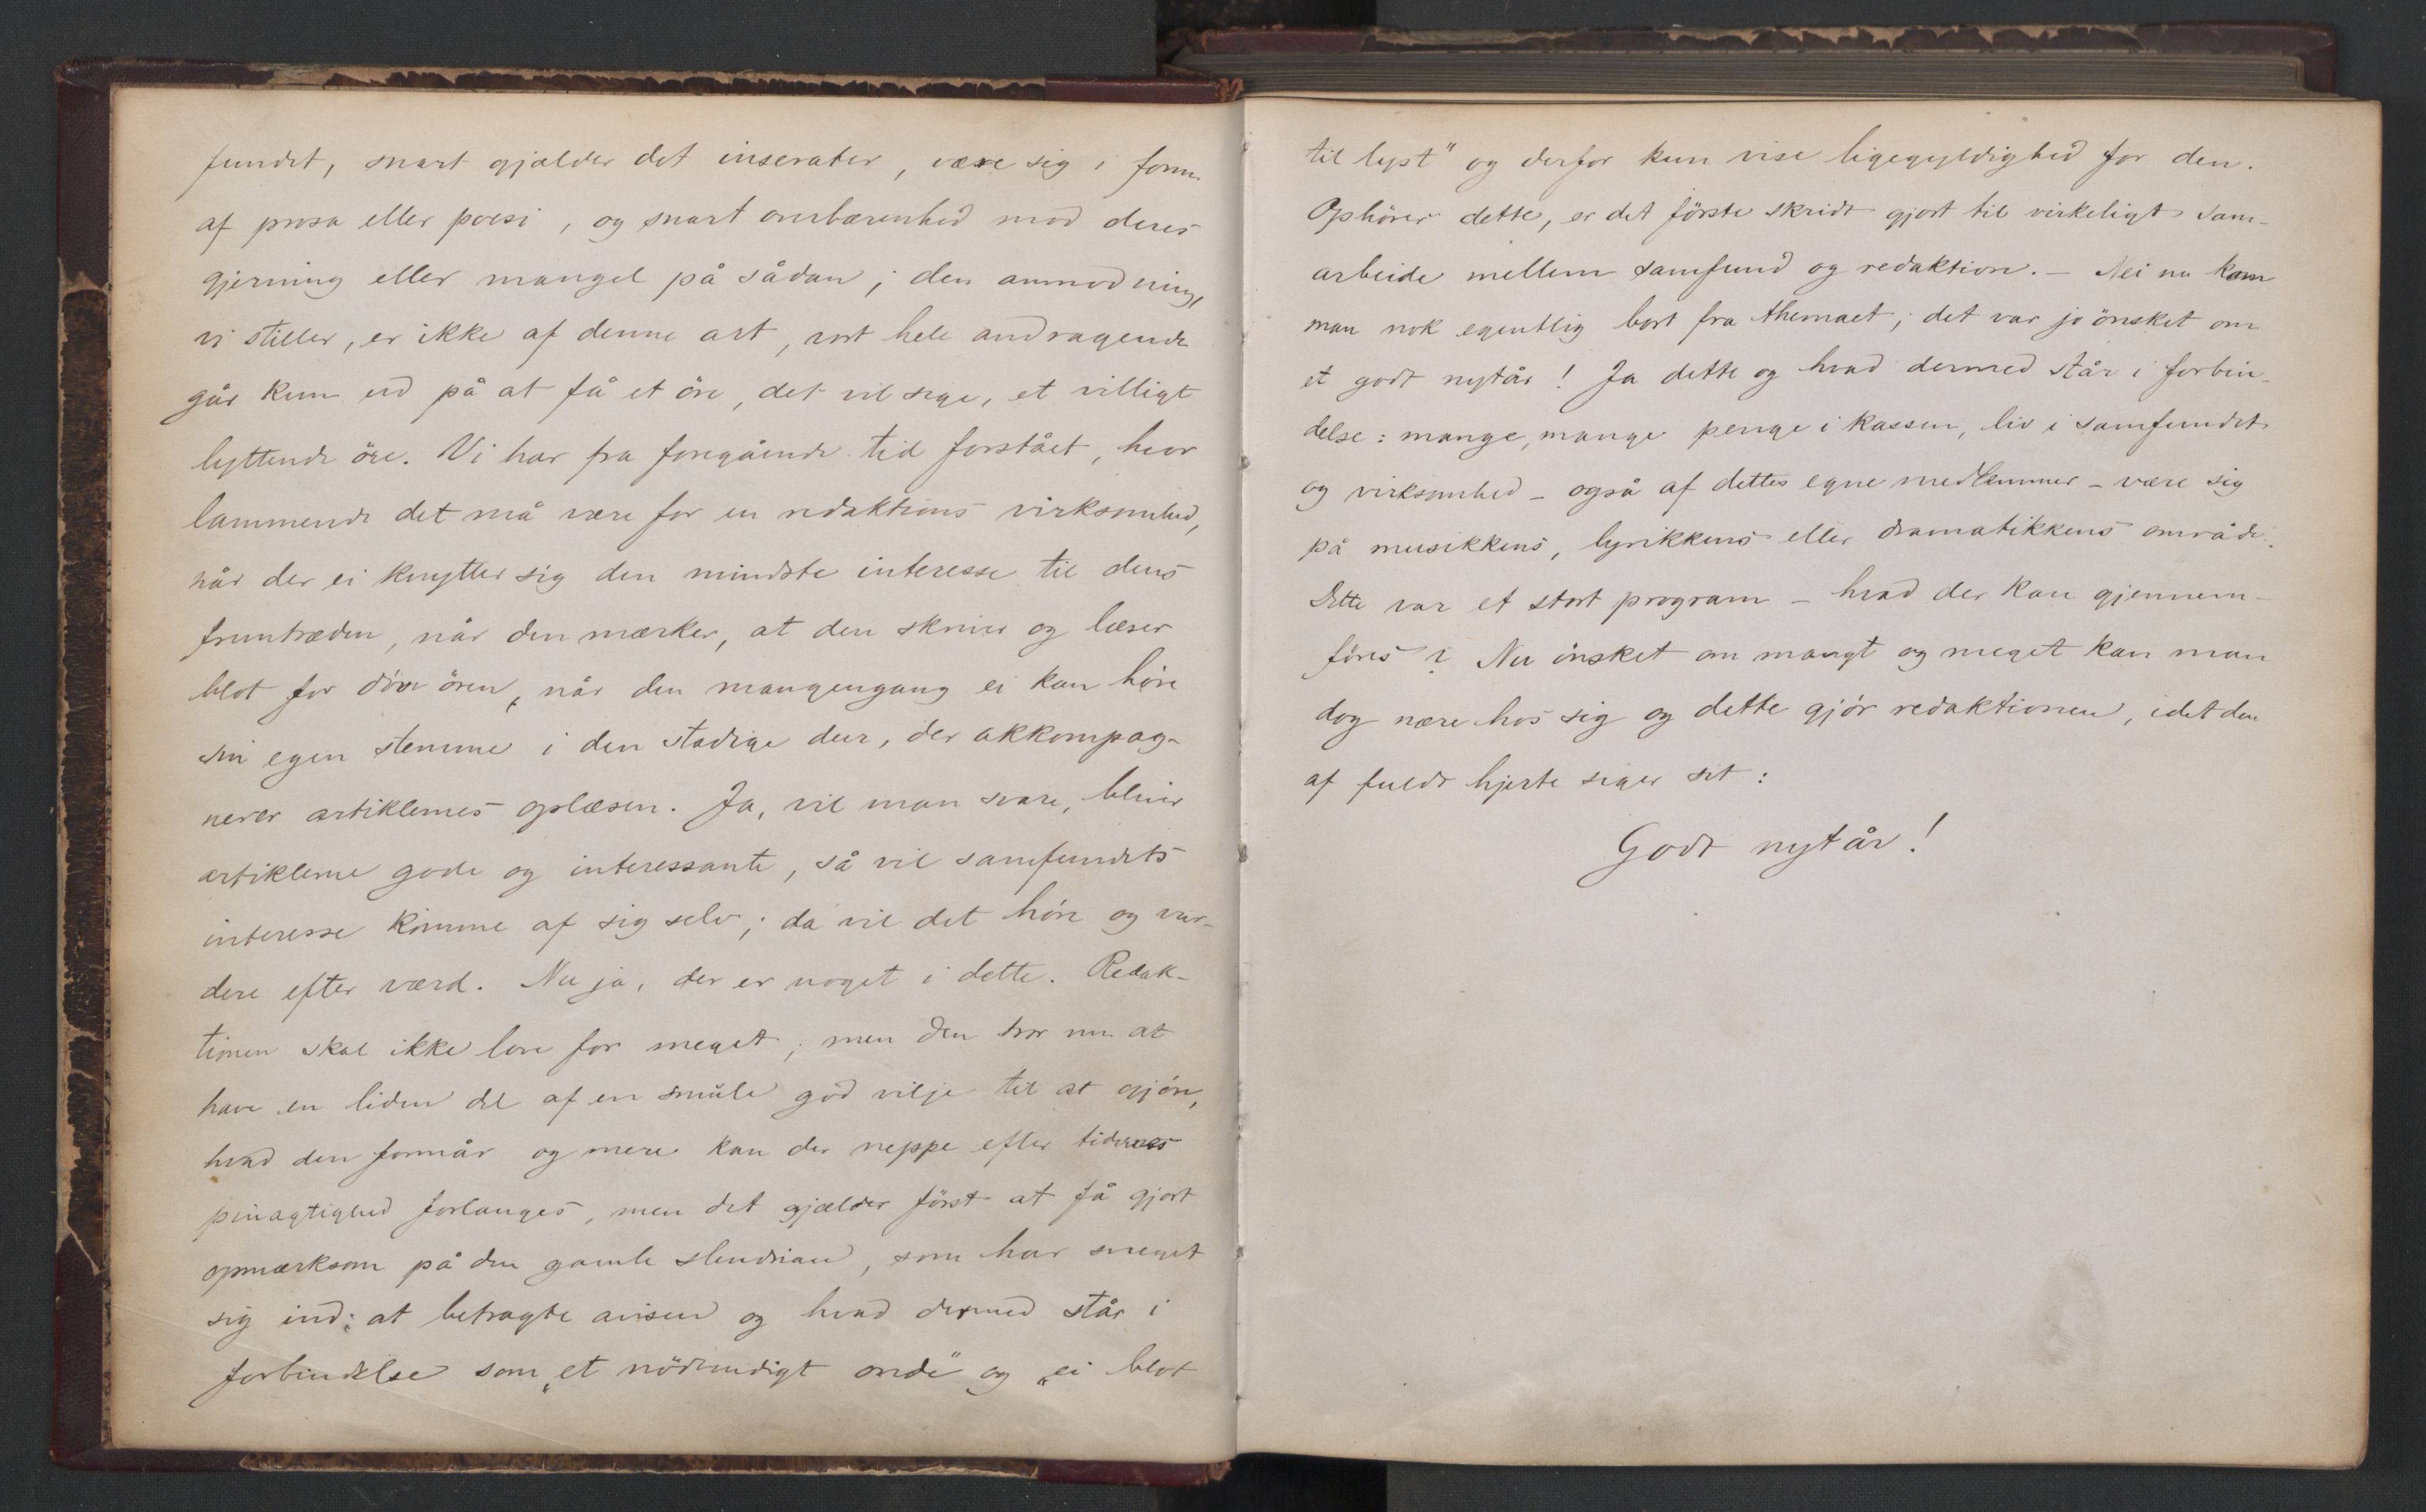 fundet, snart gjælder det inserater, være sig i form
af prosa eller poesi, og snart overbærenhed mod deres
gjerning eller mangel på sådan; den anmodning,
vi stiller, er ikke af denne art, vort hele andragende
går kun ud på at få et öre, det vil sige, et villigt
lyttende öre. Vi har fra foregående tid forstået, hvor
lammende det må være for en redaktions virksomhed,
når der ei knytter sig den mindste interesse til dens
fremtræden, når den mærker, at den skriver og læser
blot for döve ören, når den mangengang ei kan höre
sin egen stemme i den stadige dur, der akkompag-
nerer artiklernes oplæsen. Ja, vil man svare, bliver
artiklerne gode og interessante, så vil samfundets
interesse komme af sig selv; da vil det höre og vur-
dere efter værd. Nu ja, der er noget i dette. Redak-
tionen skal ikke love for meget; men den tror nu at
have en liden del af en smule god vilje til at gjöre,
hvad den formår og mere kan der neppe efter tidernes
pinagtighed forlanges, men det gjælder först at få gjort
opmærksom på den gamle slendrian, som har sneget
sig ind: at betragte avisen og hvad dermed står i
forbindelse som „et nödvendigt onde" og „ei blot
til lyst" og derfor kun vise ligegyldighed for den.
Ophörer dette, er det förste skridt gjort til virkeligt sam-
arbeide mellem samfund og redaktion. – Nei nu kom
man nok egentlig bort fra themaet; det var jo önsket om
et godt nytår! Ja dette og hvad dermed står i forbin-
delse: mange, mange penge i kassen, liv i samfundet
og virksomhed – også af dettes egne medlemmer – være sig
på musikkens, lyrikkens eller dramatikkens område.
Dette var et stort program – hvad der kan gjennem-
föres? Nu önsket om mangt og meget kan man
dog nære hos sig og dette gjör redaktionen, idet den
af fuldt hjerte siger sit:
Godt nytår!